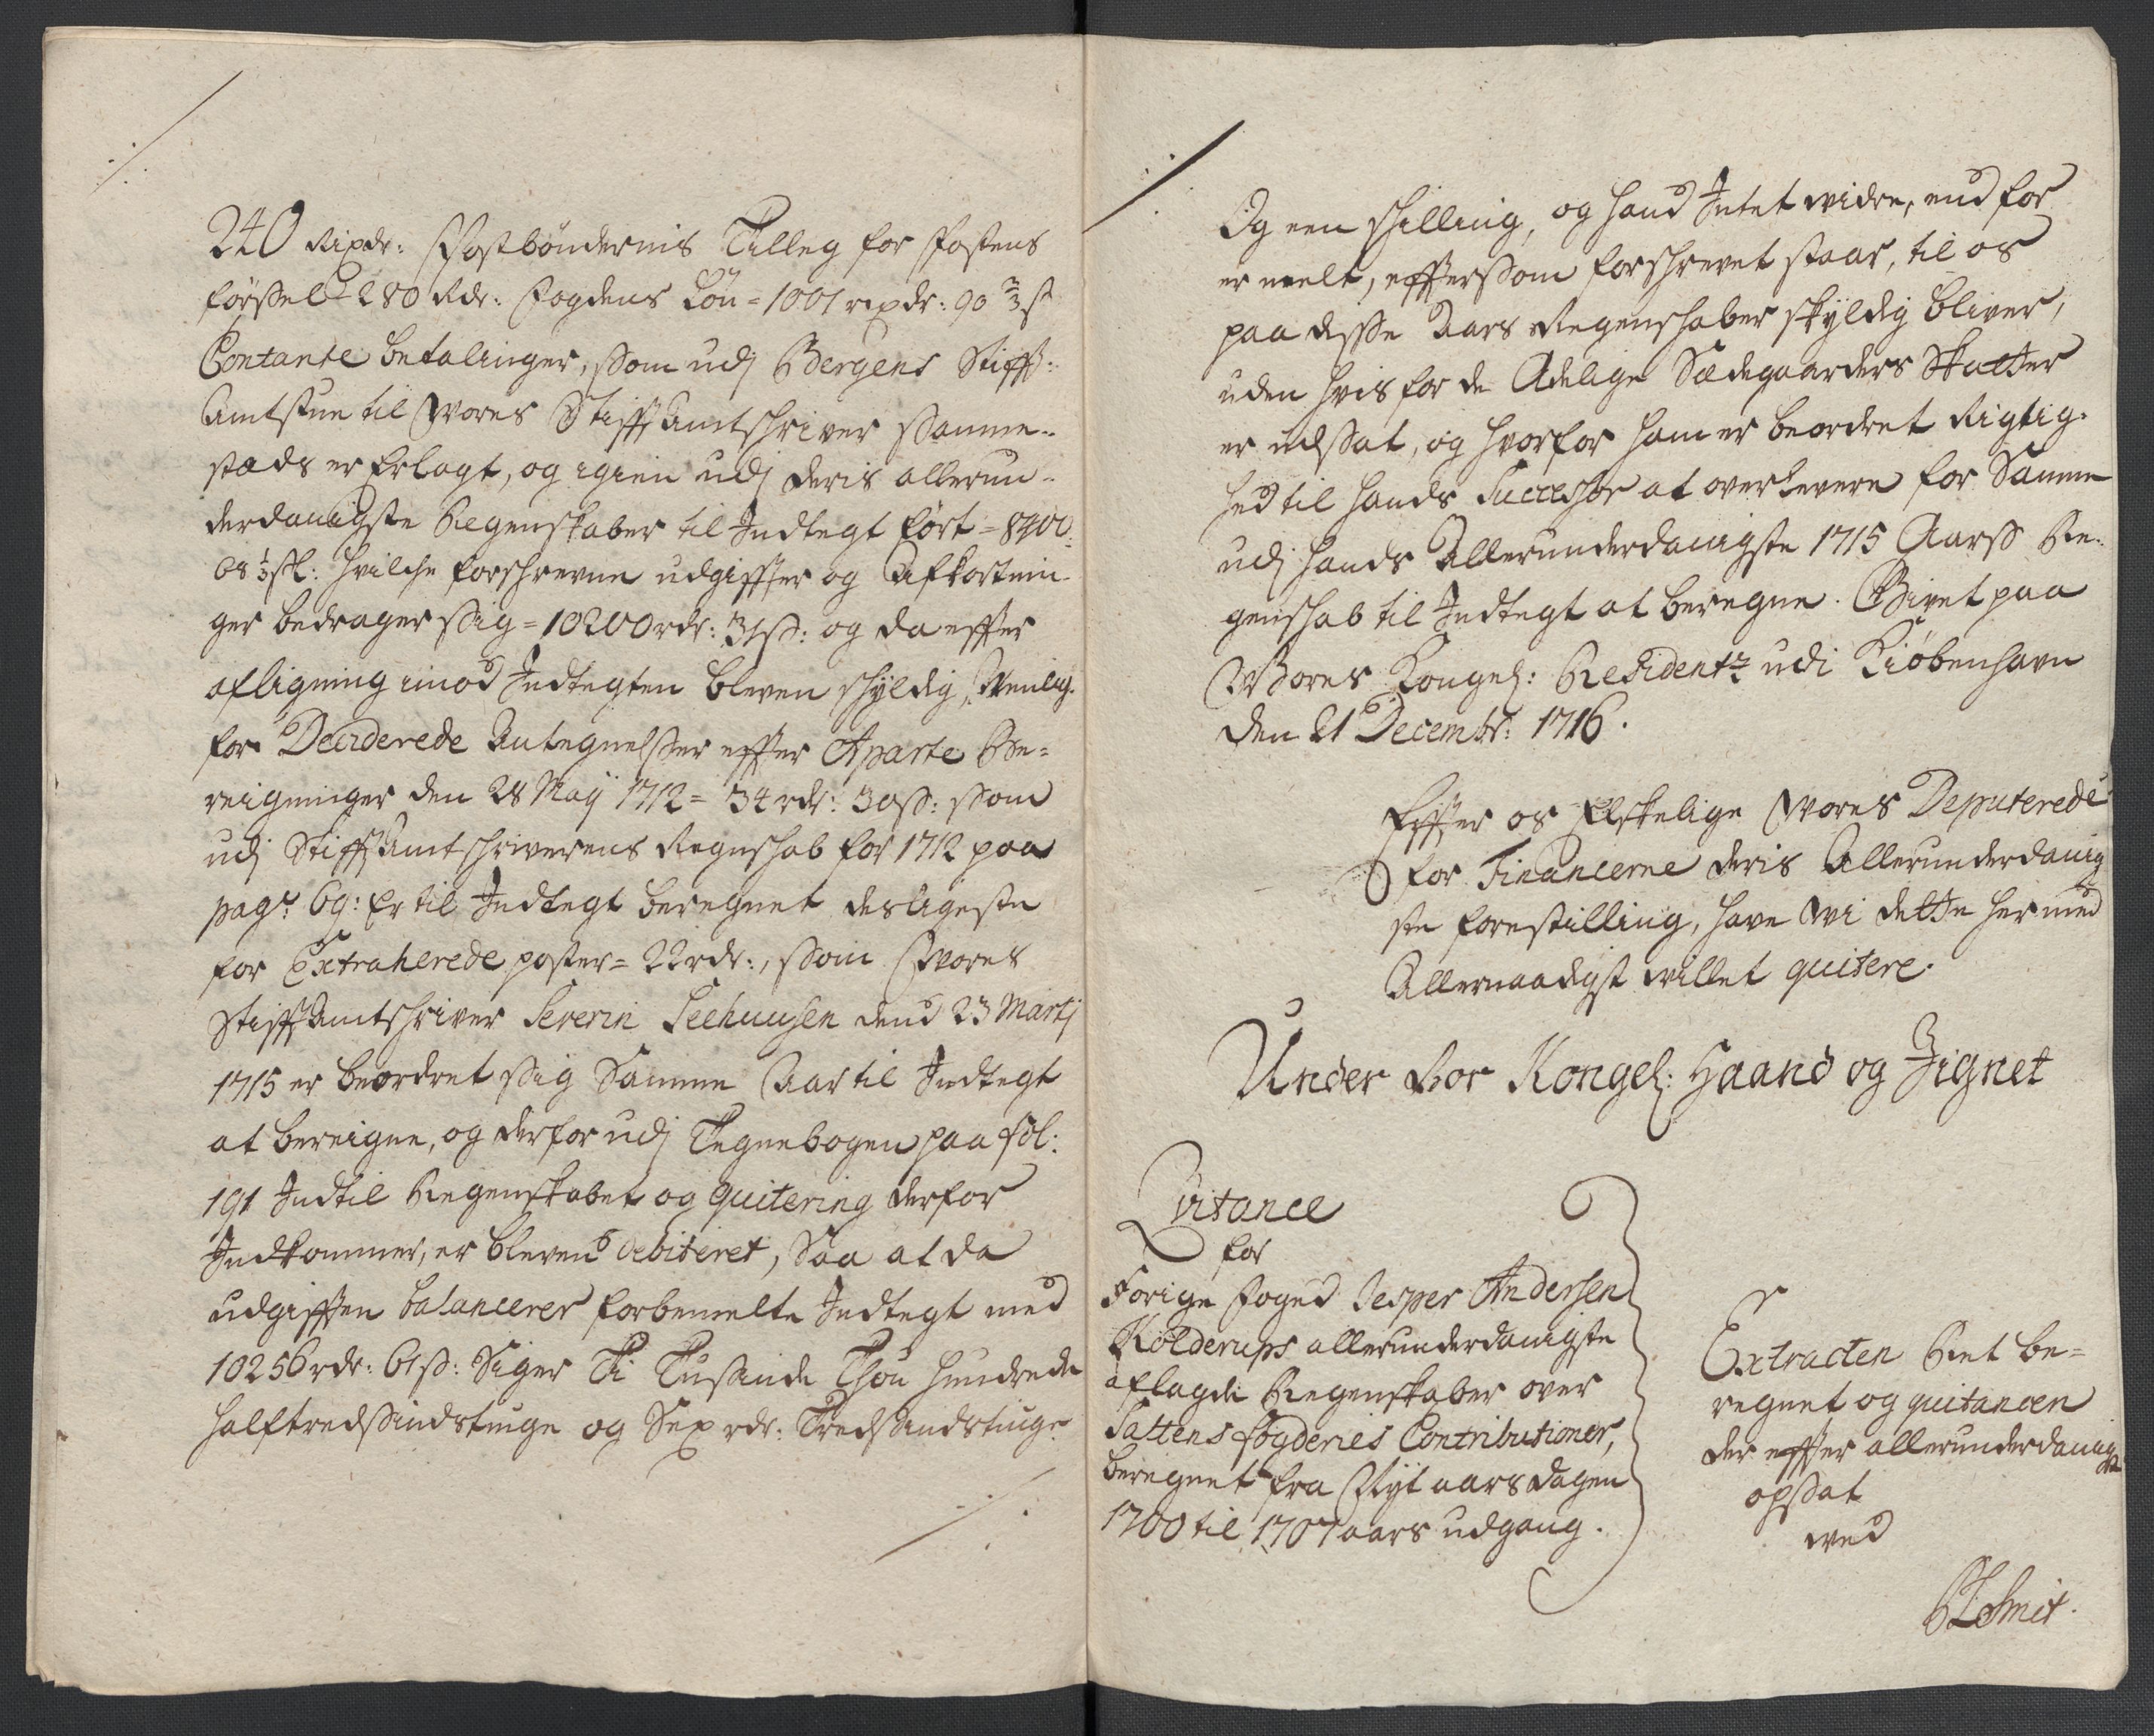 240 Rixdr: Postböndernis Tilleg for Postens
förssel = 280 Rdr: Fogdens Lön = 1001 rixdr: 90 2/3 s
Contante betalinger, ssom udj Bergens Stiff:
Amtstue til Wores StiffAmtschriver ssamme-
stæds er Erlagt, og igien udj deris allerun-
derdanigste Regenskaber til Indtegt fört = 8700:
68 1/3 sk: hvilche forschrevne udgiffter og Afkortnin-
ger bedrager ssig = 10200 rdr: 31 ss: og da effter
afligning imod Indtegten bleven schyldig, Nemlig.
for Deciderede Antegnelsser effter Aparte Be-
reigninger den 28 Maij 1712 = 34 rdr: 30 ss: ssom
udj StiffAmtschriverens Regnschab for 1712 paa
pag: 69: Er til Indtegt beregnet desligeste
for Extraherede poster = 22 rdr:, ssom Wores
StiffAmtschriver Severin Seehuusen dend 23 Martj
1715 er beordret ssig Samme Aar til Indtegt
at bereigne, og derfor udj Tegnebogen paa fol:
191 Indtil Regenskabet og quitering derfor
Indkommer, er bleven debiteret, Saa at da
udgifften balancerer forbemelte Indtegt med
10256 rdr: 61 ss: Siger Ti Tussinde Thou hundrede
halftredssindstiuge og Sex rdr: Tredssindstiuge
Og een schilling, og hand Intet widre, end for
er melt, efftersom forschrevet staar, til os
paa desse Aars Regenschaber schyldig bliver,
uden hvis for de Adelige Sædegaarders Skatter
er udssat, og hvorfor ham er beordret Rigtig-
hed til hands Successor at overlevere for Samme
udj hands Allerunderdanigste 1715 Aarss Re-
genschab til Indtegt at beregne. Givet paa
Wores Kongel: Residentz udi Kiöbenhavn
den 21 Decembr: 1716.
Effter os Elskelige Wores Deputerede
for Financerne deris Allerunderdanig
ste forestilling, have Wi dette hermed
Allernaadigst willet quitere.
Under Vor Kongel: Haand og Zignet
Qvitance
for
Forige Foged Jesper Andersen
Kolderups allerunderdanigste
aflagde Regenskaber over
Saltens fogderies Contributioner,
beregnet fra Nytaarsdagen
1700 til 1707 aars udgang.
Extracten Ret be-
regnet og quitancen
der effter allerunderdanigst
opssat
wed
Smit.